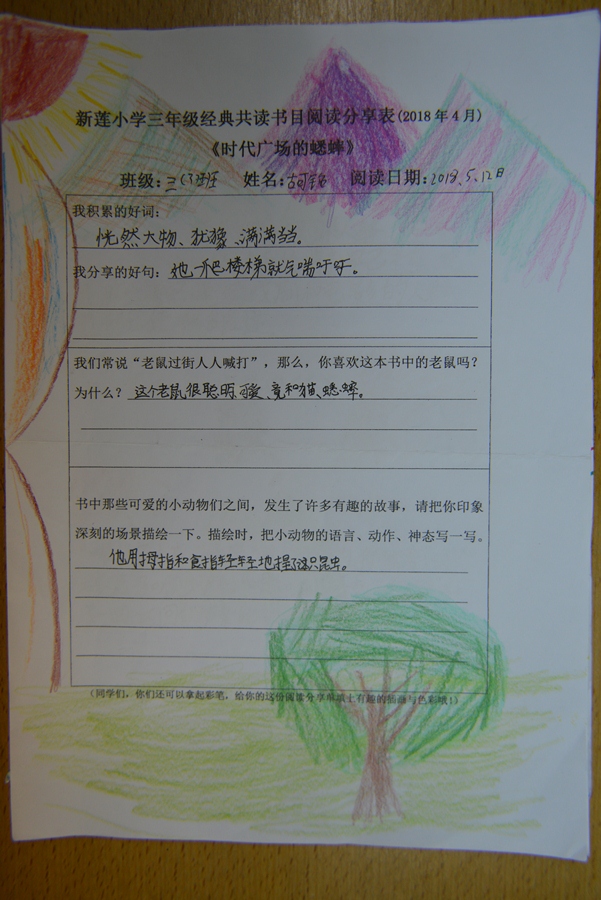 新莲小学三年级经典共读书目阅读分享表(2018年4月)
《时代广场的蟋蟀》
班级:三(7)班 姓名: 阅读日期:2018.5.12日
我积累的好词:
恍然大物、犹豫、满满当当。
我分享的好句:她一爬楼梯就气喘吁吁。
我们常说“老鼠过街人人喊打”,那么,你喜欢这本书中的老鼠吗?
为什么?这个老鼠很聪明、竟和猫、蟋蟀。
书中那些可爱的小动物们之间,发生了许多有趣的故事,请把你印象
深刻的场景描绘一下。描绘时,把小动物的语言、动作、神态写一写。
他用拇指和食指轻轻地捏了这只昆虫。
(同学们,你们还可以拿起彩笔,给你的这份阅读分享单填上有趣的插画与色彩哦!)